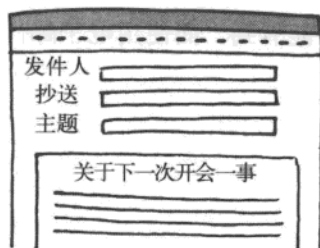 发件人
抄送
主题
关于下一次开会一事